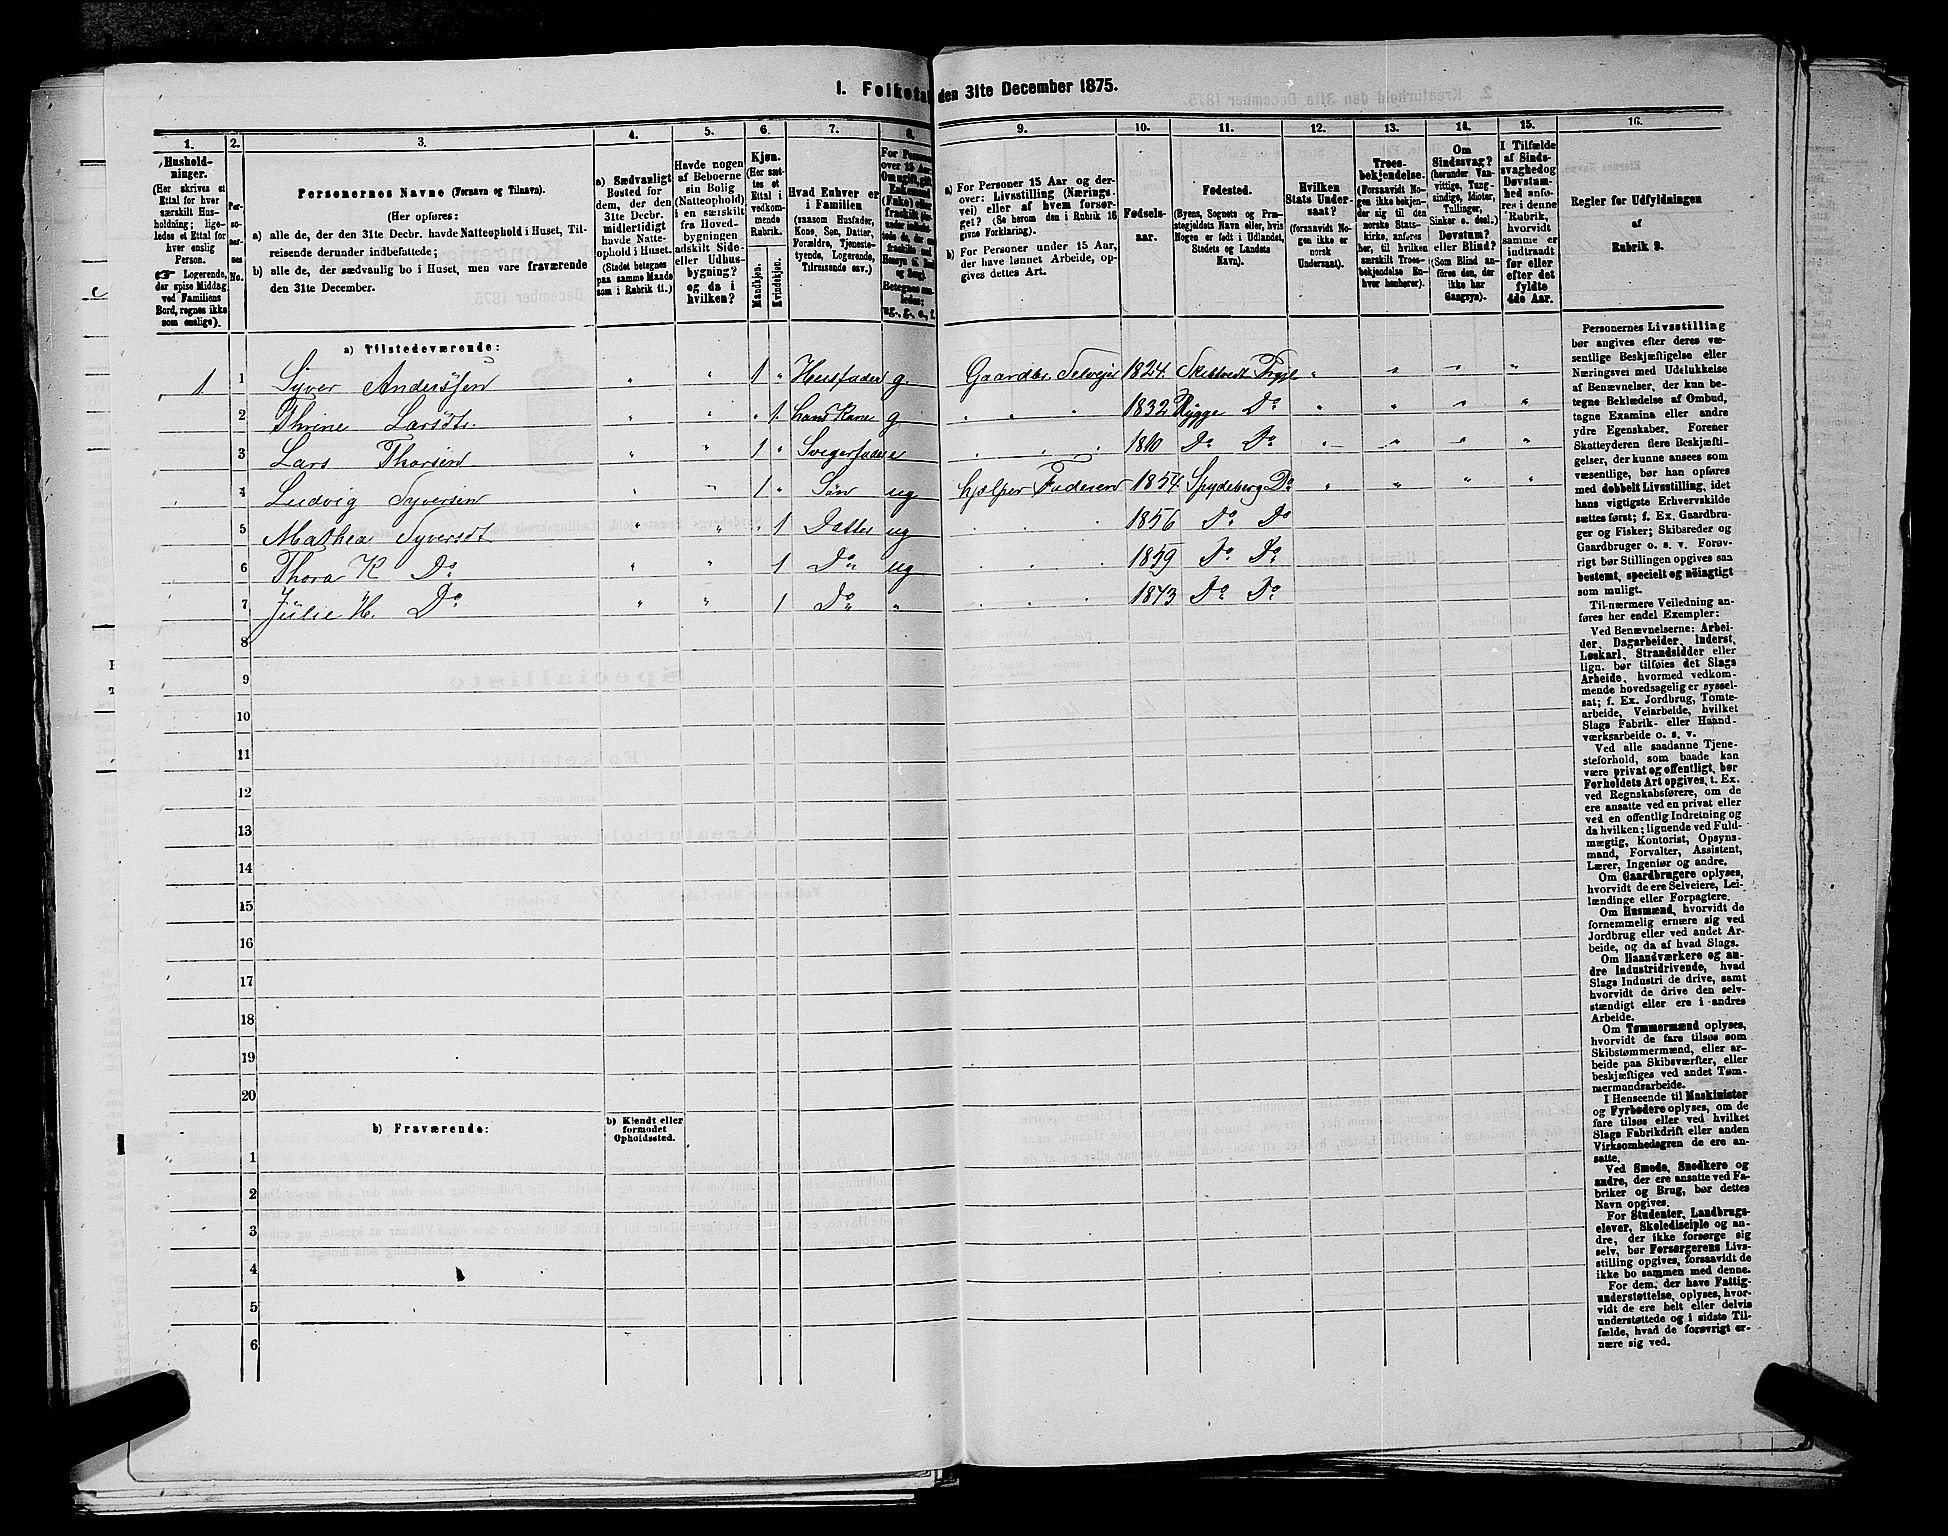 1. Folketal den 31te December 1875.
1. 2. 3. 4. 5. 6. 7. 8. 9. 10. 11. 12. 13. 14. 15. 16.
Hushold-
ninger.
(Her skrives et
Ettal for hver
særskilt Hus-
holdning; lige-
ledes et Ettal for
hver enslig
Person.
☞ Logerende,
der spise Middag
ved Familiens
Bord, regnes ikke
som enslige).
Per-
so-
ner-
nes
No.
Personernes Navne (Fornavn og Tilnavn).
(Her opføres:
a) alle de, der den 31te Decbr. havde Natteophold i Huset, Til-
reisende derunder indbefattede;
b) alle de, der sædvanlig bo i Huset, men vare fraværende
den 31te December.
a) Sædvanligt
Bosted for
dem, der den
31te Decbr.
midlertidigt
havde Natte-
ophold i Huset.
(Stedet betegnes
paa samme Maade
som i Rubrik 11.)
Havde nogen
af Beboerne
sin Bolig
(Natteophold)
i en særskilt
fra Hoved-
bygningen
adskilt Side-
eller Udhus-
bygning?
og da i
hvilken?
Kjøn.
(Her sæt-
tes et
Ettal i
vedkom-
mende
Rubrik.
Mandkjøn.
Kvindekjøn.
Hvad Enhver er
i Familien
(saasom Husfader,
Kone, Søn, Datter,
Forældre, Tjeneste-
tyende, Logerende,
Tilreisende osv.)
For Personer
over 15 Aar:
a) For Personer 15 Aar og der-
over: Livsstilling (Nærings-
vei) eller af hvem forsør-
get? (Se herom den i Rubrik 16
givne Forklaring).
b) For Personer under 15 Aar,
der have lønnet Arbeide, op-
gives dettes Art.
Fødsels-
aar.
Fødested.
(Byens, Sognets og Præ-
stegjeldets Navn eller, hvis
Nogen er født i Udlandet,
Stedets og Landets
Navn).
Hvilken
Stats Under-
saat?
(forsaavidt No-
gen ikke er
norsk
Undersaat).
Troes-
bekjendelse.
(Forsaavidt No-
gen ikke bekjen-
der sig til den
norske Stats-
kirke, anføres
her, til hvilken
særskilt Troes-
bekjendelse En-
hver henhører).
Om
Sindssvag?
(herunder Van-
vittige, Tung-
sindige, Idioter,
Tullinger,
Sinker o. desl.)
Døvstum?
eller Blind?
(Som Blind an-
føres den, der
ikke har
Gangsyn).
I Tilfælde
af Sinds-
svaghed og
Døvstum-
hed anfø-
res i denne
Rubrik,
hvorvidt
samme er
indtraadt
før eller
efter det
fyldte
4de Aar.
Regler for Udfyldningen
af
Rubrik 9.
a) Tilstedeværende:
1 1 Syver Anderssen " " 1 " Husfader g. Gaardbr. Selveier 1824. " " " "
2 Thrine Larsdtr. " " " 1 hans Kone g " " " 1832 Rygge Do " " " "
3 Lars Thorsen " " 1 " Svigerfader e " " " 1810 Do Do " " " "
4 Ludvig Syversen " " 1 " Søn ug hjelper Faderen 1854 Spydeberg Do " " " "
5 Mathea Syversdt " " " 1 Datter ug " " " 1856 Do Do
6 Thora K Do " " 1 Do ug " " " 1859 Do Do
7 Julie H. Do " " 1 Do " " " " Do Do
8
9
10
11
12
13
14
15
16
17
18
19
20
b) Fraværende:
b) Kjendt eller
formodet
Opholdssted.
1
2
3
4
5
6
Personernes Livsstilling
bør angives efter deres væ-
sentlige Beskjæftigelse eller
Næringsvei med Udelukkelse
af Benævnelser, der kun be-
tegne Beklædelse af Ombud,
tagne Examina eller andre
ydre Egenskaber. Forener
Skatteyderen flere Beskjæfti-
gelser, der kunne ansees som
væsentlige, bør han opføres
med dobbelt Livsstilling, idet
hans vigtigste Erhvervskilde
sættes først; f. Ex. Gaardbru-
ger og Fisker; Skibsreder og
Gaardbruger o. s. v. Forøv-
rigt bør Stillingen opgives saa
bestemt, specielt og nøiagtigt
som muligt.
Til nærmere Veiledning an-
føres her endel Exempler:
Ved Benævnelserne: Arbei-
der, Dagarbeider, Inderst,
Løskarl, Strandsidder eller
lign. bør tilføies det Slags
Arbeide, hvormed vedkom-
mende hovedsagelig er syssel-
sat; f. Ex. Jordbrug, Tomte-
arbeide, Veiarbeide, hvilket
Slags Fabrik- eller Haand-
værksarbeide o. s. v.
Ved alle saadanne Tjene-
steforhold, som baade kan
være privat og offentligt, bør
Forholdets Art opgives, t. Ex.
ved Regnskabsførere, om de
ere ansatte ved en privat eller
ved en offentlig Indretning og
da hvilken; lignende ved Fuld-
mægtig, Kontorist, Opsyns-
mand, Forvalter, Assistent,
Lærer, Ingeniør og andre.
Om Gaardbrugere oplyses,
hvorvidt de ere Selveiere, Lei-
lændinge eller Forpagtere.
Om Husmænd, hvorvidt de
fornemmelig ernære sig ved
Jordbrug eller ved andet Ar-
beide, og da af hvad Slags.
Om Haandværkere og an-
dre Industridrivende, hvad
Slags Industri de drive, samt
hvorvidt de drive den selv-
stændigt eller ere i andres
Arbeide.
Om Tømmermænd oplyses,
hvorvidt de fare tilsøs som
Skibstømmermænd, eller ar-
beide paa Skibsværfter, eller
beskjæftiges ved andet Tøm-
mermandsarbeide.
I Henseende til Maskinister
og Fyrbødere oplyses, om de
fare tilsøs eller ved hvilket
Slags Fabrikdrift eller anden
Virksomhedsgren de ere an-
satte.
Ved Smede, Snedkere og
andre, der ere ansatte ved Fa-
briker og Brug, bør dettes
Navn opgives.
For Studenter, Landbrugs-
elever, Skoledisciple og an-
dre, der ikke forsørge sig
selv, bør Forsørgerens Livs-
stilling opgives, forsaavidt de
ikke bo sammen med denne.
For dem, der have Fattig-
understøttelse, oplyses, hvor-
vidt de ere helt eller delvis
understøttede og i sidste Til-
fælde, hvad de forøvrigt er-
nære sig ved.